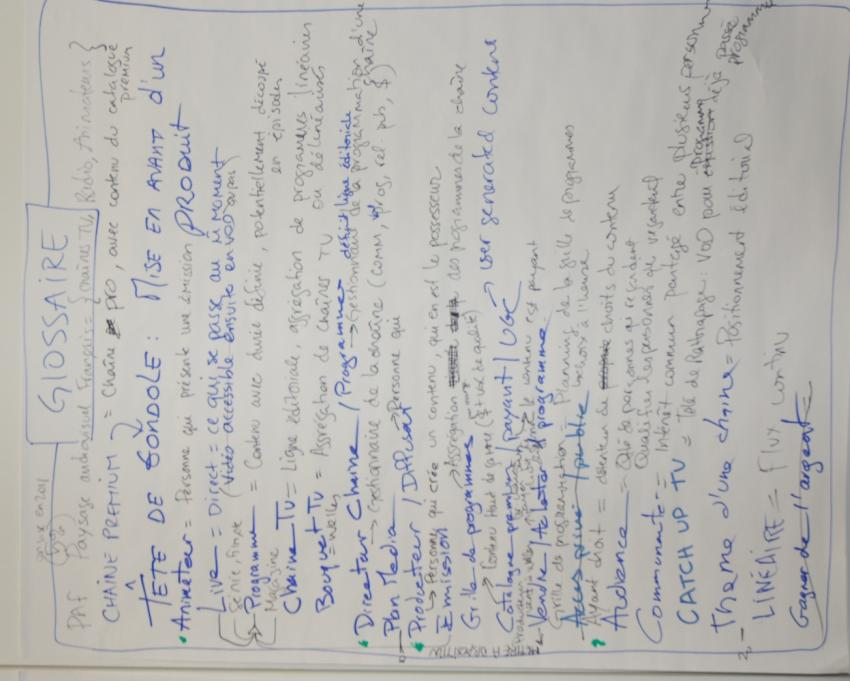 GLOSSAIRE
PAF Paysage audiovisuel Français = {chaînes TV, Radio, Animateurs}
CHAÎNE PREMIUM = Chaîne pro, avec contenu du catalogue premium
TÊTE DE GÔNDOLE : MISE EN AVANT d'un PRODUIT
Animateur = Personne qui présente une émission
Live = Direct = ce qui se passe au moment
(Vidéo accessible ensuite en VOD ou pas)
Série, Finite
Programme = Contenu avec durée définie, potentiellement découpé en épisodes
Magazine
Chaîne TV = Ligne éditoriale, agrégation de programmes linéaires ou délinéarisés
Bouquet TV = Agrégation de chaînes TV
Directeur Chaîne / Programmes définit ligne éditoriale
→ Gestionnaire de la chaîne (comm, prog, rel. pub, $) → Gestionnaire de la programmation d'une chaîne
Plan Media
Producteur / Diffuseur → Personne qui
→ Personne qui crée un contenu, qui en est le possesseur
Emission
Grille de programmes → Agrégation des programmes de la chaîne
→ Contenu Haut de gamme
Catalogue premium / payant / UGC → user generated content
Vendre / Acheter programme le contenu est payant
Grille de programmation = Planning de la grille de programmes
Accès privé / public
Ayant droit = détenteur de droits du contenu
Audience = Qté de personnes qui regardent
Qualifier les personnes qui regardent
Communauté = Intérêt commun partagé entre plusieurs personnes
CATCH UP TV = Télé de Rattrapage : VOD pour programme déjà passé
Thème d'une chaîne = Positionnement éditorial programme
LINÉAIRE = Flux continu
Gagner de l'argent =